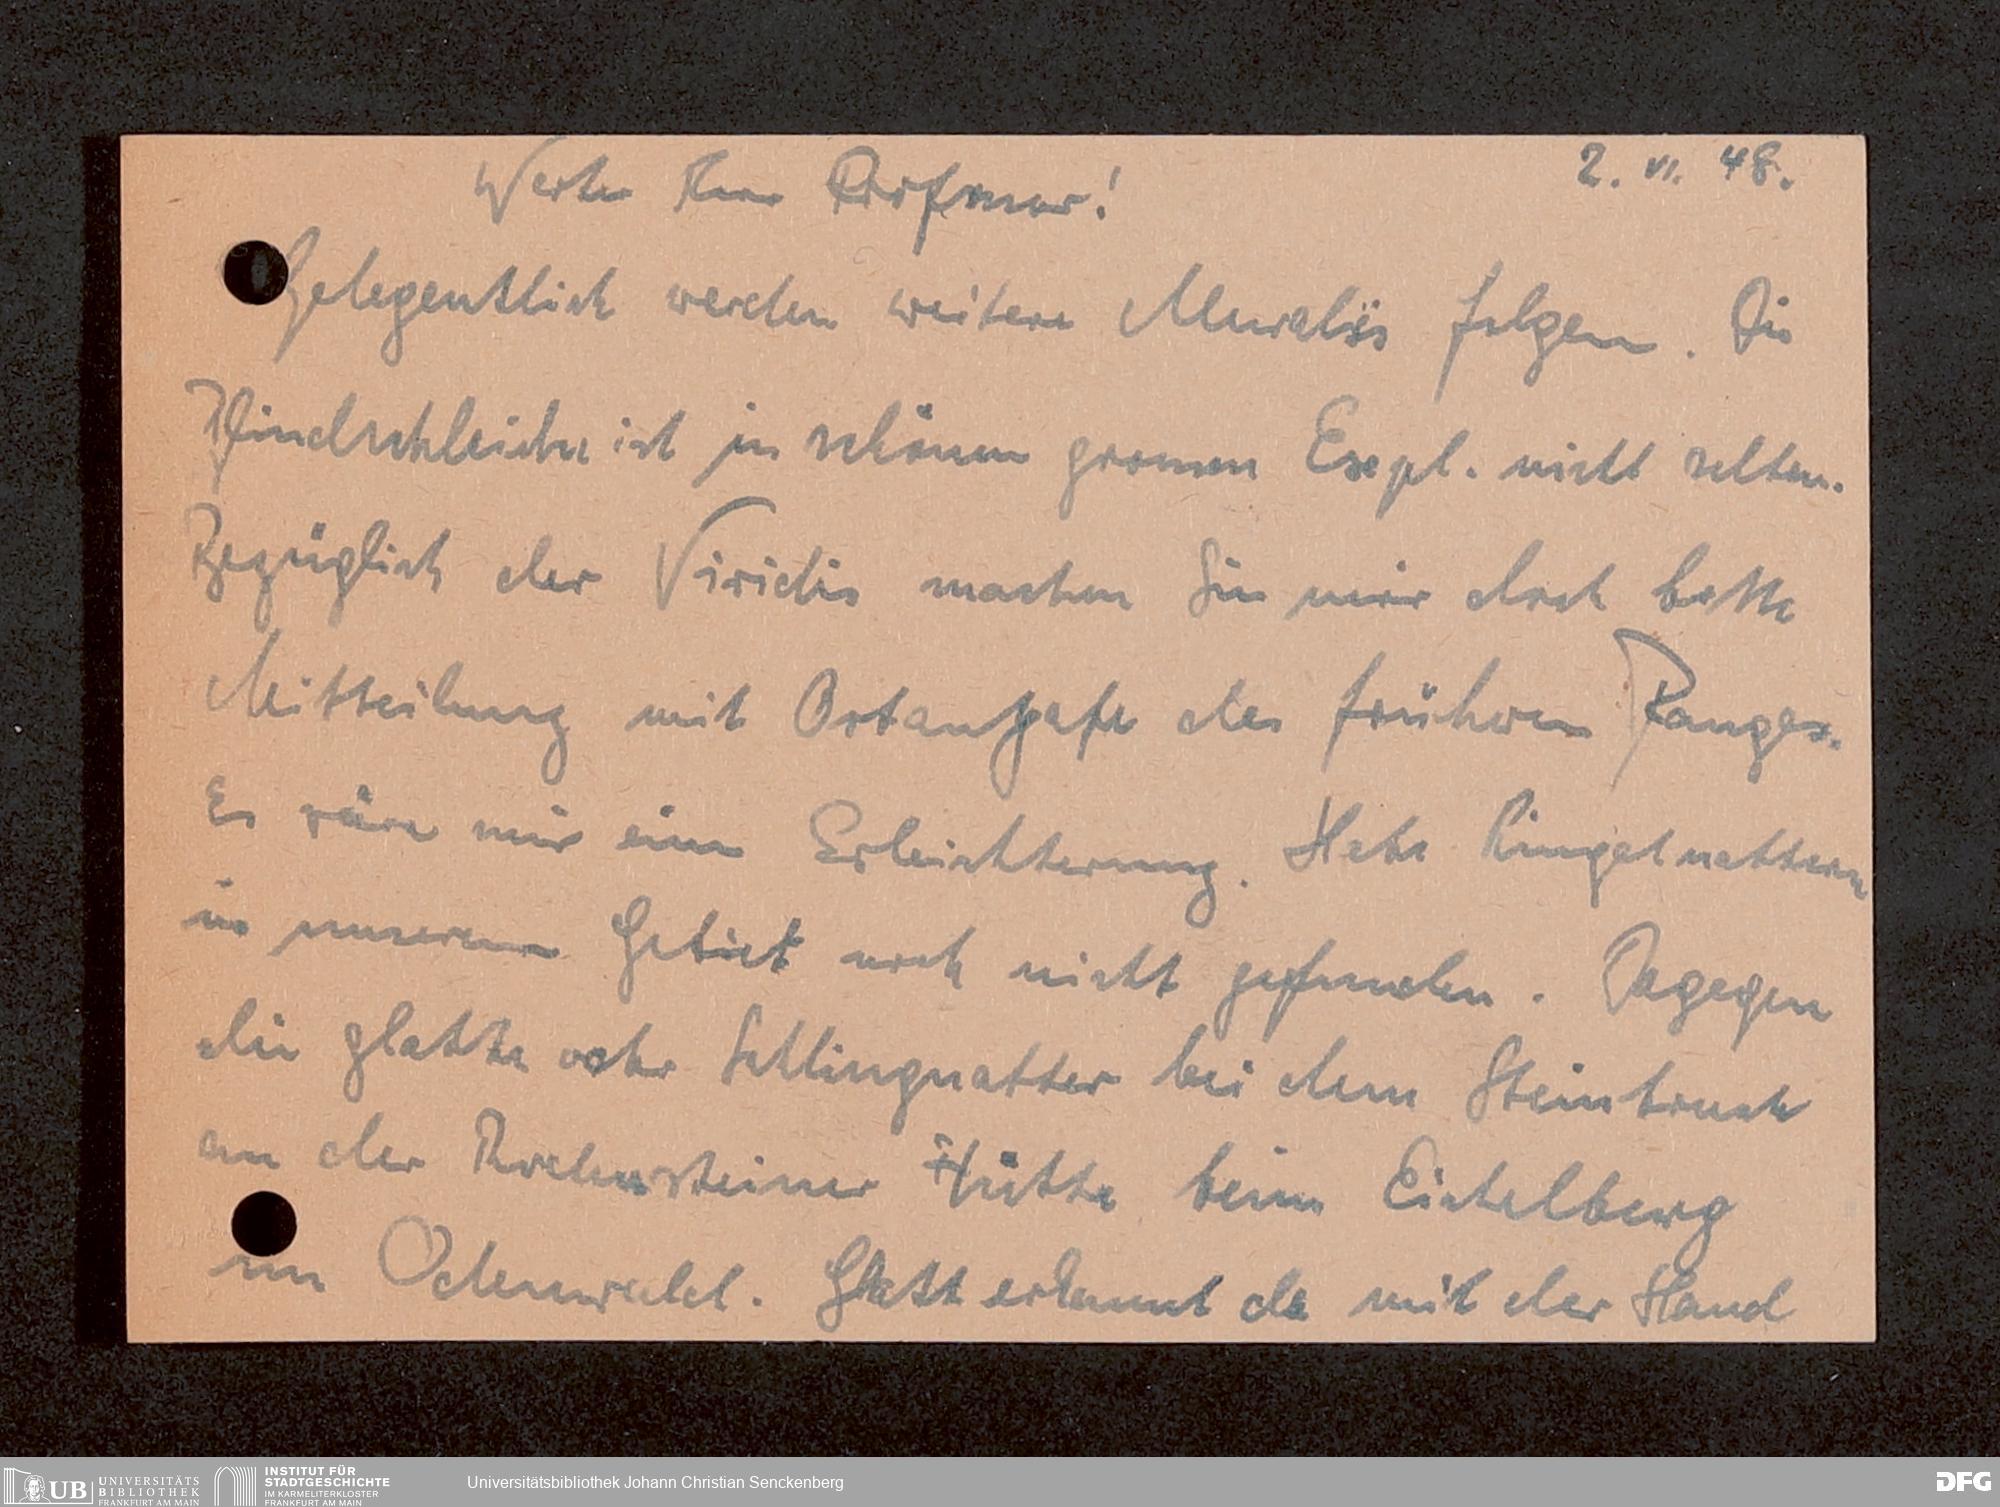 2. VI. 48.
Werter Herr Professor!
Gelegentlich werden weitere Muralis folgen. Die
Blindschleiche ist in schönen grossen Exepl. nicht selten.
Bezüglich der Viridis machen Sie mir doch bitte
Mitteilung mit Ortangabe des früheren Fanges.
Es wäre mir eine Erleichterung. Habe Ringelnattern
in unserem Gebiet noch nicht gefunden. Dagegen
die glatte oder Schlingnatter bei dem Steinbruch
an der Rodensteiner Hütte beim Eichelberg
im Odenwald. Glatt erkannt da mit der Hand
UB UNIVERSITÄTS
BIBLIOTHEK
FRANKFURT AM MAIN
INSTITUT FÜR
STADTGESCHICHTE
IM KARMELITERKLOSTER
FRANKFURT AM MAIN
Universitätsbibliothek Johann Christian Senckenberg
DFG